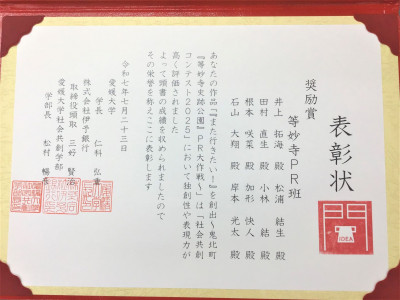 表彰状
IDEA
奨励賞
等妙寺PR班
井上 拓海 殿 松浦 結生 殿
田村 直生 殿 小林 結 殿
根本 咲菜 殿 加形 快人 殿
石山 大翔 殿 岸本 光太 殿
あなたの作品『また行きたい！』を創出～鬼北町
『等妙寺史跡公園』PR大作戦～」は「社会共創
コンテスト2025」において独創性や表現力が
高く評価されました
よって頭書の成績を収められましたので
その栄誉を称えここに表彰します
令和七年七月二十三日
愛媛大学
学長 仁科 弘重
株式会社伊予銀行
取締役頭取 三好 賢治
愛媛大学社会共創学部
学部長 松村 暢彦